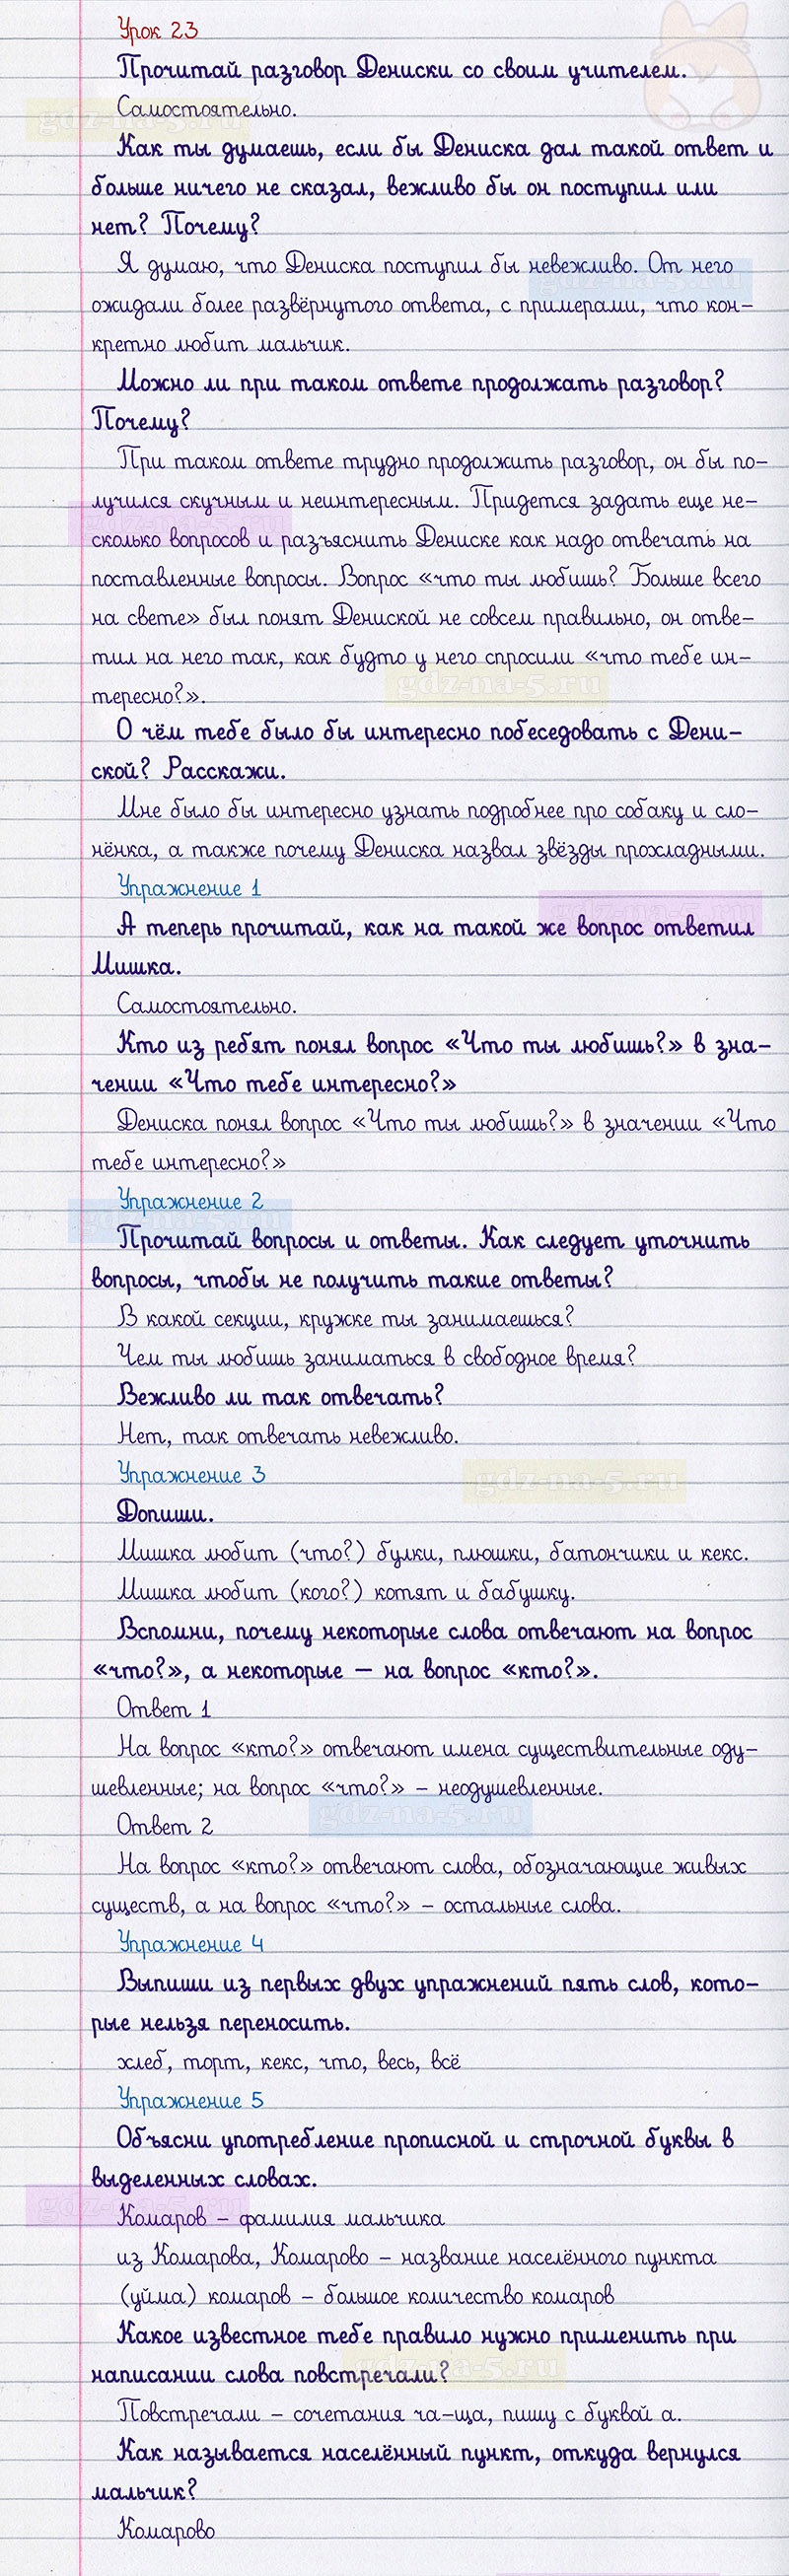 Урок 23
Прочитай разговор Дениски со своим учителем.
Самостоятельно.
Как ты думаешь, если бы Дениска дал такой ответ и
больше ничего не сказал, вежливо бы он поступил или
нет? Почему?
Я думаю, что Дениска поступил бы невежливо. От него
ожидали более развёрнутого ответа, с примерами, что кон-
кретно любит мальчик.
Можно ли при таком ответе продолжать разговор?
Почему?
При таком ответе трудно продолжить разговор, он бы по-
лучился скучным и неинтересным. Придется задать еще не-
сколько вопросов и разъяснить Дениске как надо отвечать на
поставленные вопросы. Вопрос «что ты любишь? Больше всего
на свете» был понят Дениской не совсем правильно, он отве-
тил на него так, как будто у него спросили «что тебе ин-
тересно?».
О чём тебе было бы интересно побеседовать с Дени-
ской? Расскажи.
Мне было бы интересно узнать подробнее про собаку и сло-
нёнка, а также почему Дениска назвал звёзды прохладными.
Упражнение 1
А теперь прочитай, как на такой же вопрос ответил
Мишка.
Самостоятельно.
Кто из ребят понял вопрос «Что ты любишь?» в зна-
чении «Что тебе интересно?»
Дениска понял вопрос «Что ты любишь?» в значении «Что
тебе интересно?»
Упражнение 2
Прочитай вопросы и ответы. Как следует уточнить
вопросы, чтобы не получить такие ответы?
В какой секции, кружке ты занимаешься?
Чем ты любишь заниматься в свободное время?
Вежливо ли так отвечать?
Нет, так отвечать невежливо.
Упражнение 3
Допиши.
Мишка любит (что?) булки, плюшки, батончики и кекс.
Мишка любит (кого?) котят и бабушку.
Вспомни, почему некоторые слова отвечают на вопрос
«что?», а некоторые – на вопрос «кто?».
Ответ 1
На вопрос «кто?» отвечают имена существительные оду-
шевленные; на вопрос «что?» – неодушевленные.
Ответ 2
На вопрос «кто?» отвечают слова, обозначающие живых
существ, а на вопрос «что?» – остальные слова.
Упражнение 4
Выпиши из первых двух упражнений пять слов, кото-
рые нельзя переносить.
хлеб, торт, кекс, что, весь, всё
Упражнение 5
Объясни употребление прописной и строчной буквы в
выделенных словах.
Комаров – фамилия мальчика
из Комарова, Комарово – название населённого пункта
(уйма) комаров – большое количество комаров
Какое известное тебе правило нужно применить при
написании слова повстречали?
Повстречали – сочетания ча-ща, пишу с буквой а.
Как называется населённый пункт, откуда вернулся
мальчик?
Комарово